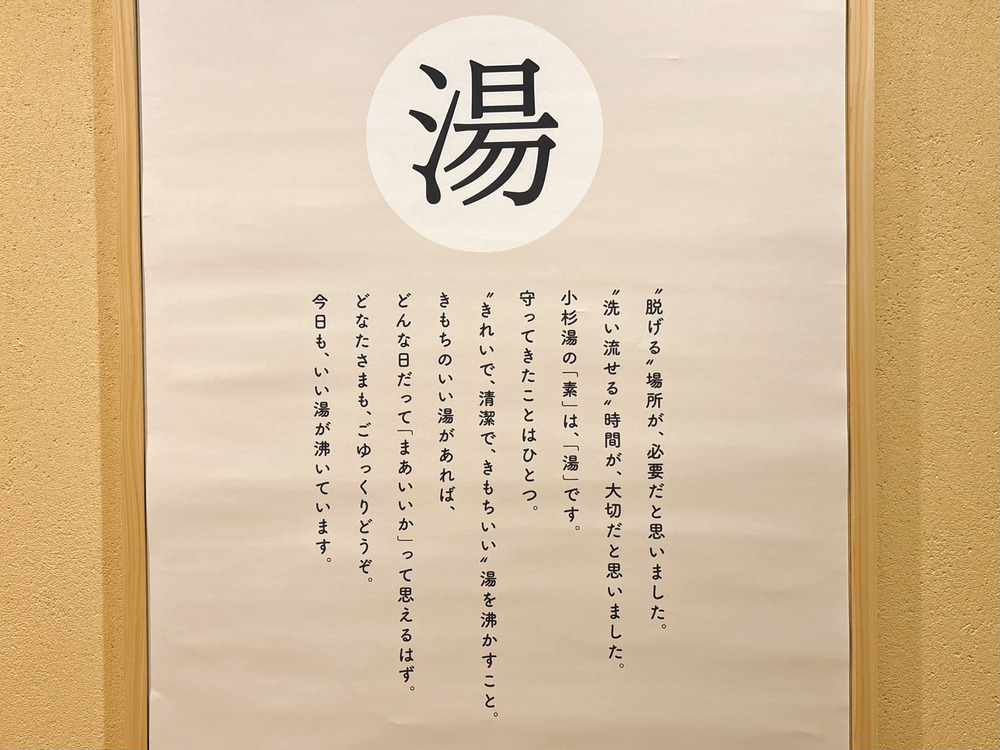 湯
〝脱げる〟場所が、必要だと思いました。
〝洗い流せる〟時間が、大切だと思いました。
小杉湯の「素」は、「湯」です。
守ってきたことはひとつ。
〝きれいで、清潔で、きもちいい〟湯を沸かすこと。
きもちのいい湯があれば、
どんな日だって「まあいいか」って思えるはず。
どなたさまも、ごゆっくりどうぞ。
今日も、いい湯が沸いています。